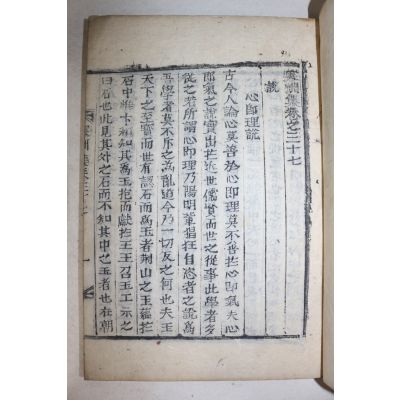 寒洲集卷之三十七
說
心卽理說
古今人論心莫善於心卽理莫不善於心卽氣夫心
卽氣之說實出於近世儒賢而世之從事此學者多
從之若所謂心卽理乃陽明輩猖狂自恣者之說爲
吾學者莫不斥之爲亂道今乃一切反之何也夫玉
天下之至寶而世有認石而爲玉者荊山之玉蘊於
石中惟卞和知其爲玉抱而獻於王王召玉工示之
曰石也此見其外之石而不知其中之玉者也在朝